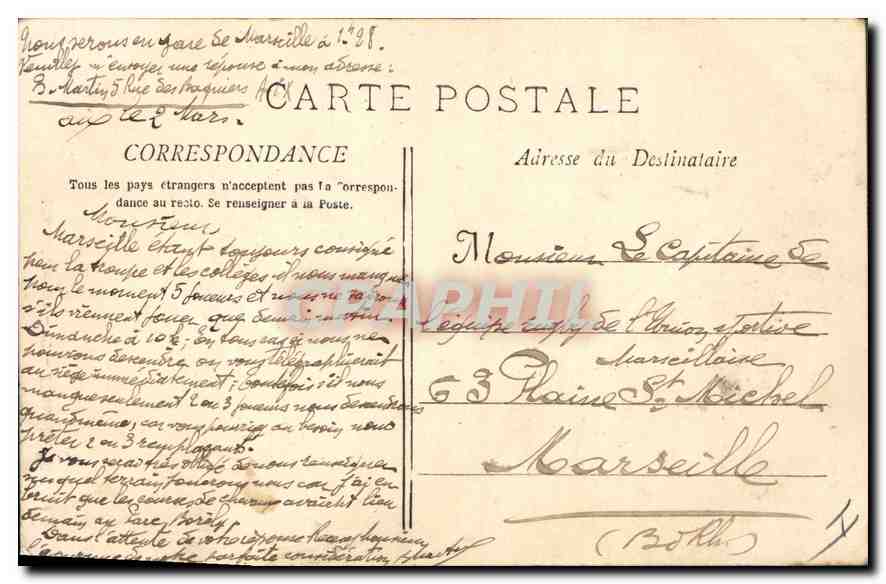 Nous serons en gare de Marseille à 1h28.
Veuillez m'envoyer une réponse à mon adresse:
B. Martin 5 Rue des Bagniers Aix
CARTE POSTALE
aix le 2 Mars.
CORRESPONDANCE
Tous les pays étrangers n'acceptent pas la Correspon-
dance au recto. Se renseigner à la Poste.
Monsieur
Marseille étant toujours consigné
pour la troupe et les collèges il nous manque
pour le moment 5 joueurs et nous ne
s'ils viennent jouer que demain matin
Dimanche à 10h; en tous cas si nous ne
pouvons descendre on vous télégraphierait
au siège immédiatement; toutefois s'il nous
manque seulement 2 ou 3 joueurs nous descendrons
quand même, car vous pourriez au besoin nous
prêter 2 ou 3 remplaçants.
Je vous serai très obligé de nous renseigner
sur quel terrain jouerons nous car j'ai en
bruit que les courses de chevaux avaient lieu
demain au Parc Borély
Dans l'attente de votre réponse Recevez Monsieur
parfaite considération
Adresse du Destinataire
Monsieur Le Capitaine de
l'équipe rugby de l'Union Sportive
Marseillaise
63 Plaine St Michel
Marseille
(B d Rh)
CPAPHIL